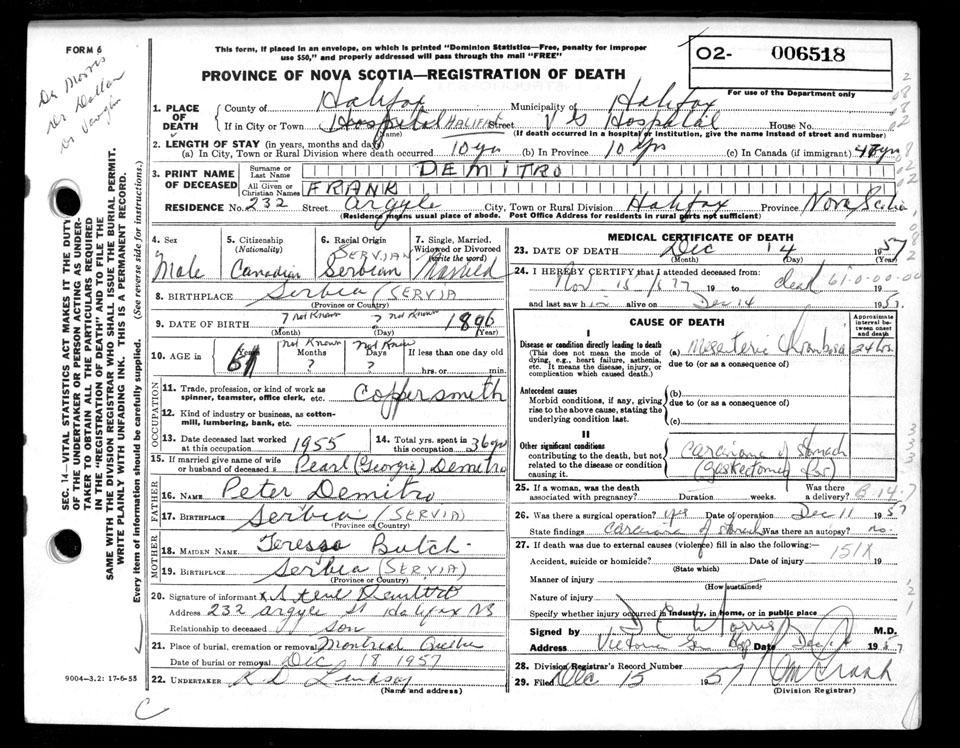 FORM 6
This form, if placed in an envelope, on which is printed "Dominion Statistics—Free, penalty for improper
use $50," and properly addressed will pass through the mail "FREE"
O2- 006518
For use of the Department only
PROVINCE OF NOVA SCOTIA—REGISTRATION OF DEATH
Dr Morris
Dr
Dr Vaughn
1. PLACE OF DEATH
County of Halifax Municipality of Halifax
If in City or Town Hospital HALIFAX Street V G Hospital House No.
(Name) (If death occurred in a hospital or institution, give the name instead of street and number)
2. LENGTH OF STAY (in years, months and days)
(a) In City, Town or Rural Division where death occurred 10 yrs (b) In Province 10 yrs (c) In Canada (if immigrant) 47 yrs
3. PRINT NAME OF DECEASED
Surname or Last Name DEMITRO
All Given or Christian Names FRANK
RESIDENCE No. 232 Street Argyle City, Town or Rural Division Halifax Province Nova Scotia
(Residence means usual place of abode. Post Office Address for residents in rural parts not sufficient)
4. Sex
Male
5. Citizenship (Nationality)
Canadian
6. Racial Origin
SERVIAN
Serbian
7. Single, Married, Widowed or Divorced (write the word)
Married
8. BIRTHPLACE Serbia (SERVIA)
(Province or Country)
9. DATE OF BIRTH ? Not Known ? Not Known 1896
(Month) (Day) (Year)
10. AGE in 61 Years Not Known Months ? Not Known Days ? If less than one day old
hrs. or min.
OCCUPATION
11. Trade, profession, or kind of work as spinner, teamster, office clerk, etc. Coppersmith
12. Kind of industry or business, as cotton-mill, lumbering, bank, etc.
13. Date deceased last worked at this occupation 1955
14. Total yrs. spent in this occupation 36 yrs
15. If married give name of wife or husband of deceased Pearl (Georgia) Demitro
FATHER
16. NAME Peter Demitro
17. BIRTHPLACE Serbia (SERVIA)
(Province or Country)
MOTHER
18. MAIDEN NAME Teressa Butch
19. BIRTHPLACE Serbia (SERVIA)
(Province or Country)
20. Signature of informant X Steve Demitro
Address 232 Argyle St Halifax NS
Relationship to deceased son
21. Place of burial, cremation or removal Montreal Quebec
Date of burial or removal Dec 18 1957
22. UNDERTAKER R D Lindsay
(Name and address)
MEDICAL CERTIFICATE OF DEATH
23. DATE OF DEATH Dec 14 1957
(Month) (Day) (Year)
24. I HEREBY CERTIFY that I attended deceased from:
Nov 15/577 19 to death 61-0-00-00
and last saw h im alive on Dec 14 1957
CAUSE OF DEATH
Approximate interval between onset and death
I
Disease or condition directly leading to death
(This does not mean the mode of dying, e.g., heart failure, asthenia, etc. It means the disease, injury, or complication which caused death.)
(a) Mesenteric Thrombosis 24 hrs
due to (or as a consequence of)
Antecedent causes
Morbid conditions, if any, giving rise to the above cause, stating the underlying condition last.
(b)
due to (or as a consequence of)
(c)
II
Other significant conditions
contributing to the death, but not related to the disease or condition causing it.
Carcinoma of Stomach
(Gastrectomy
25. If a woman, was the death associated with pregnancy? Duration weeks. Was there a delivery? B-14-7
26. Was there surgical operation? yes Date of operation Dec 11 1957
State findings Carcinoma of Stomach Was there an autopsy? no
27. If death was due to external causes (violence) fill in also the following:—
151X
Accident, suicide or homicide? Date of injury 19
(State which)
Manner of injury
(How sustained)
Nature of injury
Specify whether injury occurred in industry, in home, or in public place
Signed by Morris M.D.
Address Victoria Gen Hosp Date Dec 1957
28. Division Registrar's Record Number
29. Filed Dec 15 1957
(Division Registrar)
SEC. 14—VITAL STATISTICS ACT MAKES IT THE DUTY
OF THE UNDERTAKER OR PERSON ACTING AS UNDER-
TAKER TO OBTAIN ALL THE PARTICULARS REQUIRED
IN THE "REGISTRATION OF DEATH" AND TO FILE THE
SAME WITH THE DIVISION REGISTRAR WHO SHALL ISSUE THE BURIAL PERMIT.
WRITE PLAINLY WITH UNFADING INK. THIS IS A PERMANENT RECORD.
Every item of information should be carefully supplied. (See reverse side for instructions.)
9004-3.2: 17-6-55